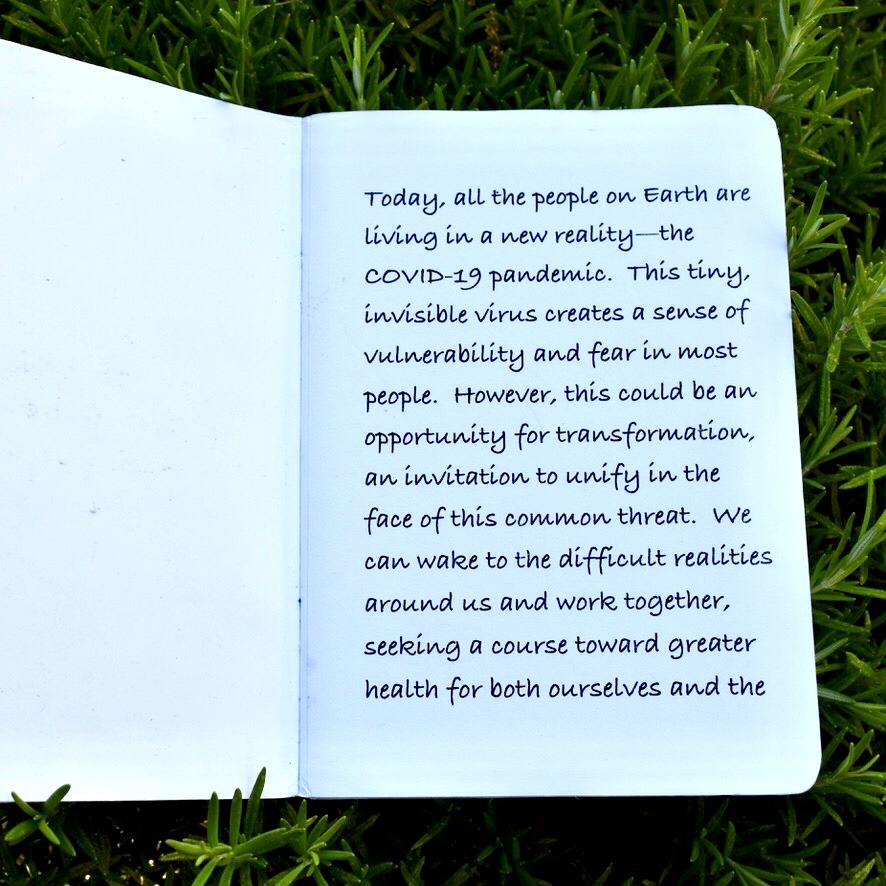 Today, all the people on Earth are
living in a new reality—the
COVID-19 pandemic.  This tiny,
invisible virus creates a sense of
vulnerability and fear in most
people.  However, this could be an
opportunity for transformation,
an invitation to unify in the
face of this common threat.  We
can wake to the difficult realities
around us and work together,
seeking a course toward greater
health for both ourselves and the